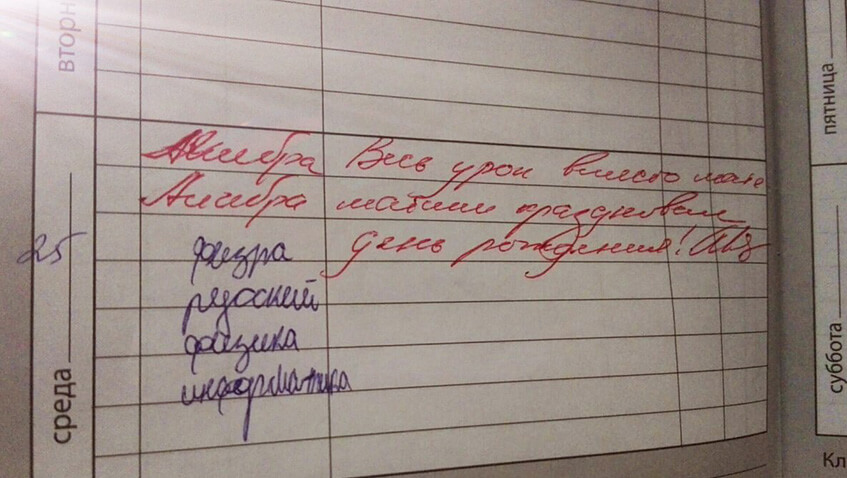 вторн
25
среда
Алгебра Весь урок вместо мате
Алгебра матики праздновал
физра день рождения!
русский
физика
информатика
пятница
суббота
Кл